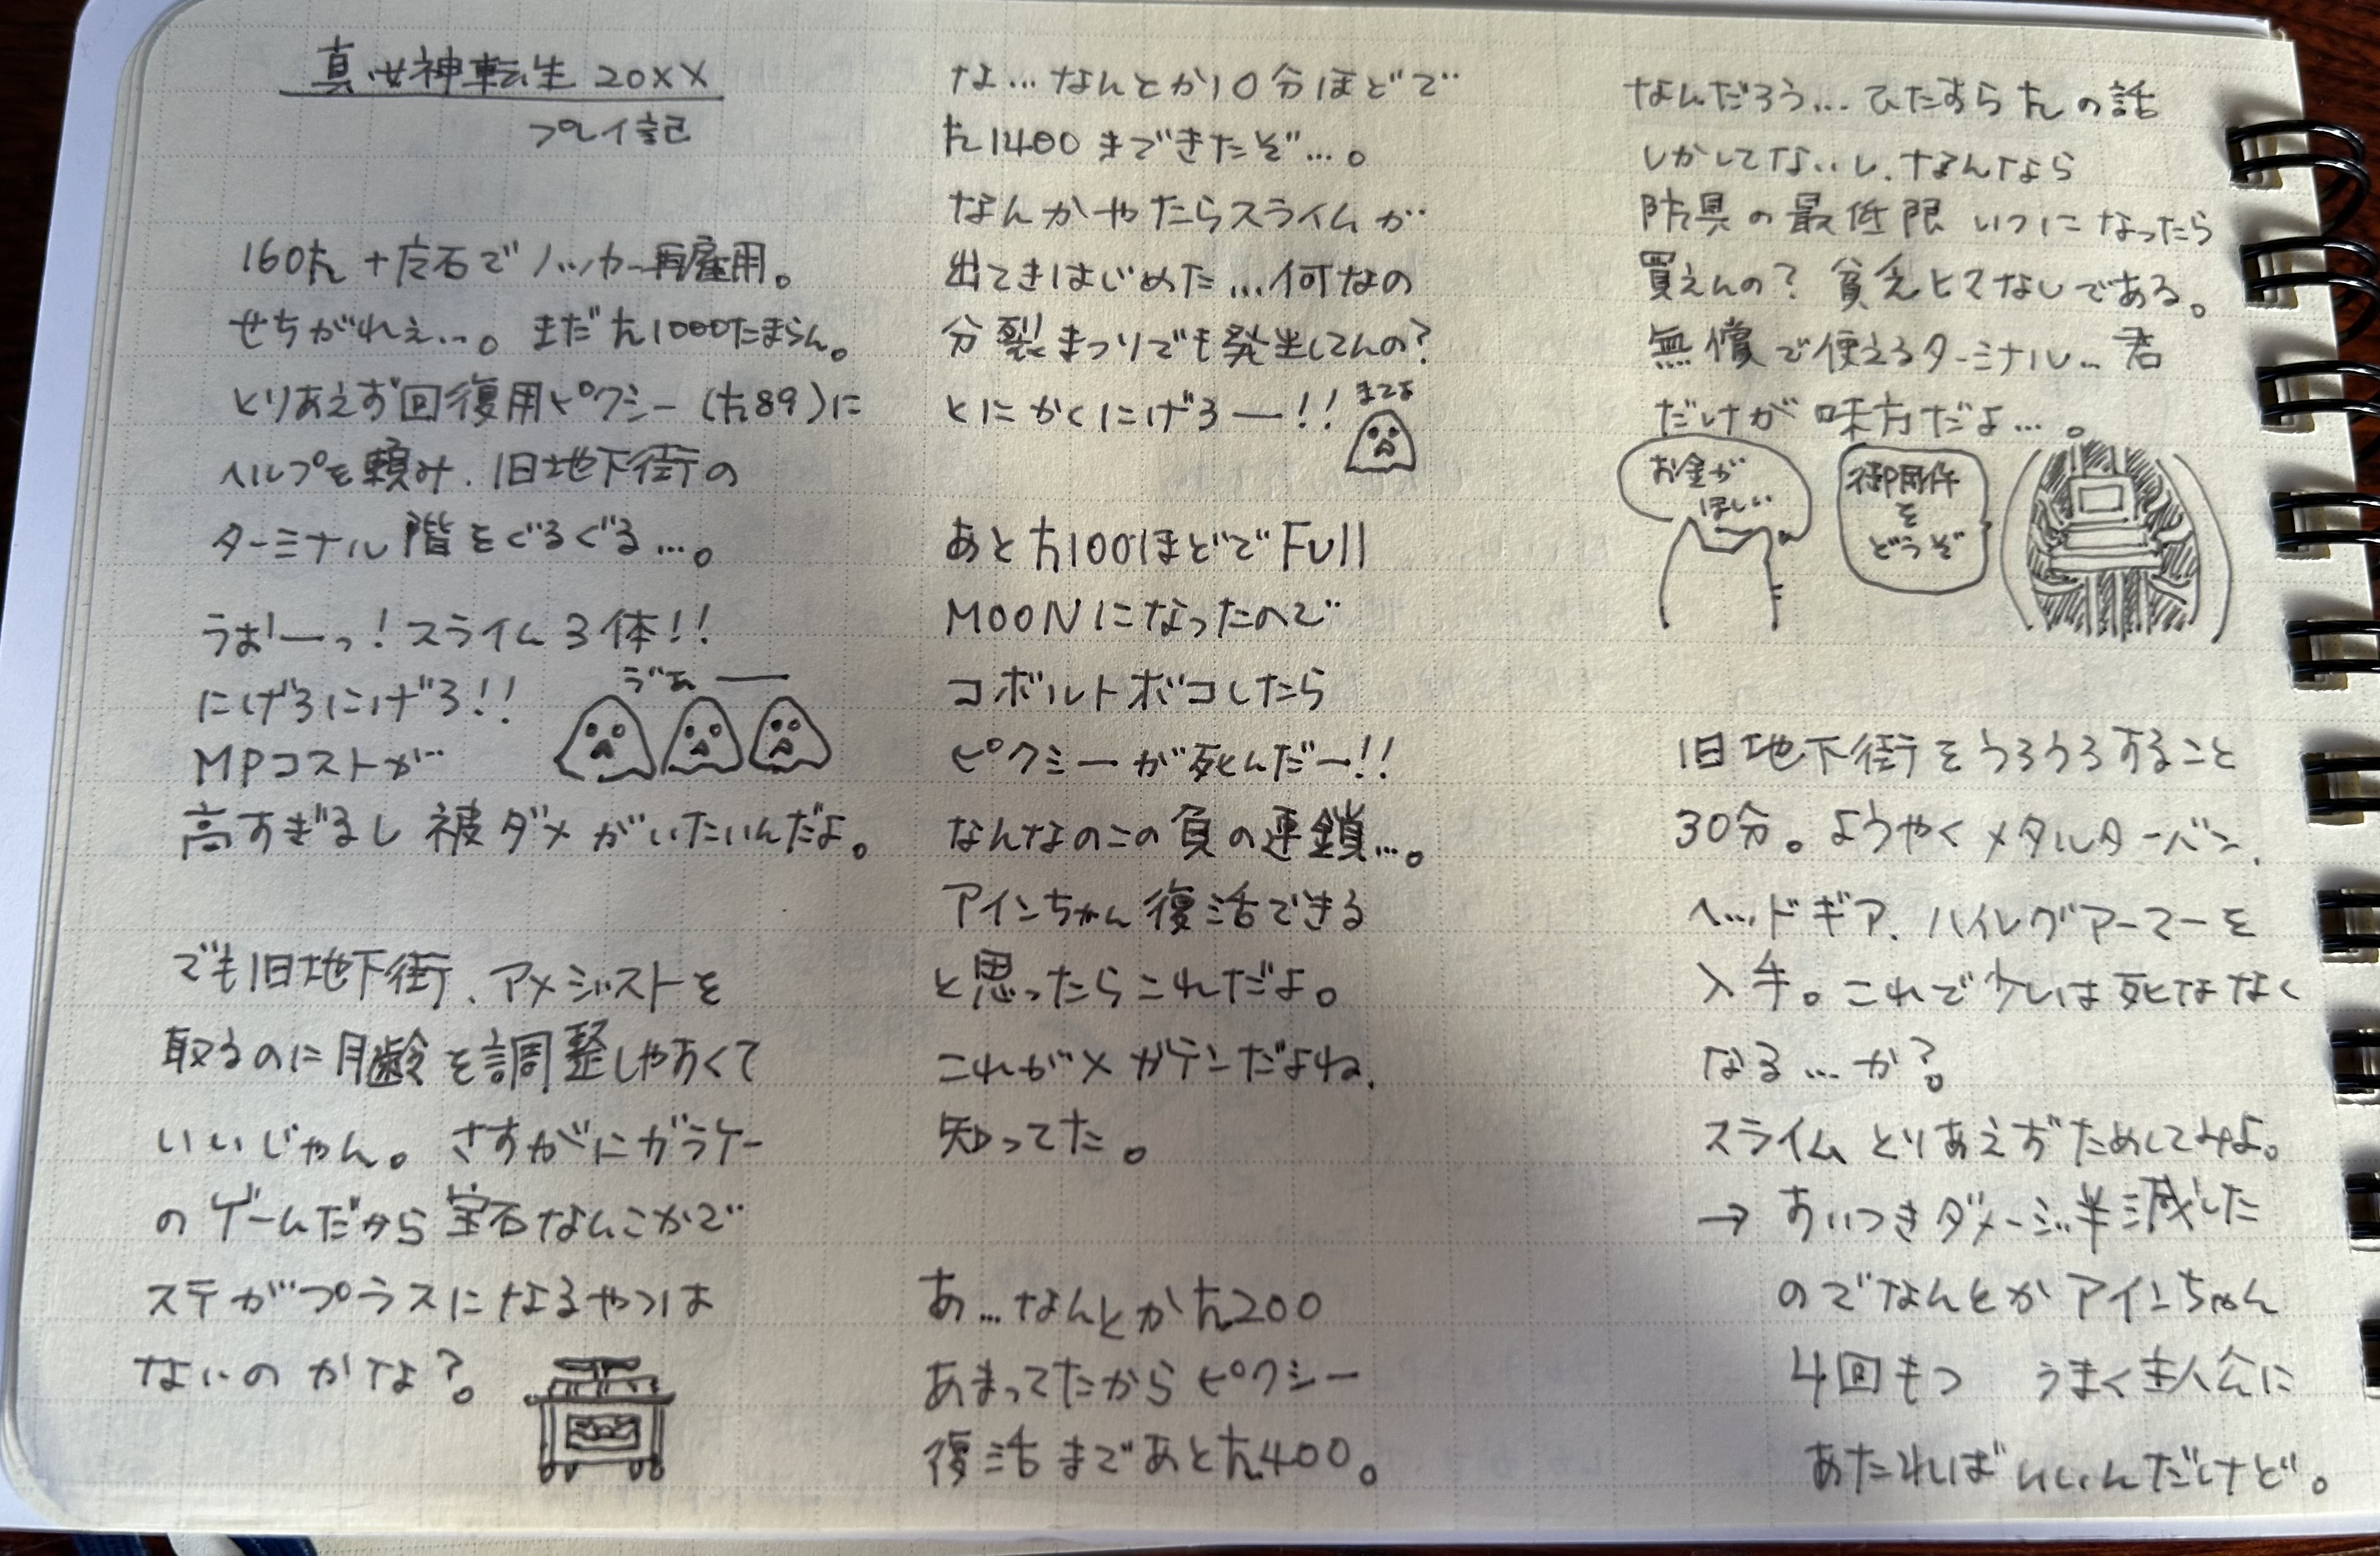 真・女神転生 20XX
プレイ記
160㌆ + 宝石でノッカー再雇用。
せちがれぇ…。まだ㌆1000たまらん。
とりあえず回復用ピクシー(㌆89)に
ヘルプを頼み、旧地下街の
ターミナル階をぐるぐる…。
うおーっ!スライム3体!!
にげろにげろ!!
ゔぁー
MPコストが
高すぎるし被ダメがいたいんだよ。
でも旧地下街、アメジストを
取るのに月齢を調整しやすくて
いいじゃん。さすがにガラケー
のゲームだから宝石なんこかで
ステがプラスになるやつは
ないのかな?。
な…なんとか10分ほどで
㌆1400まできたぞ…。
なんかやたらスライムが
出てきはじめた…何なの
分裂まつりでも発生してんの?
とにかくにげろー!!
まてよ
あと㌆100ほどでFull
MOONになったので
コボルトボコしたら
ピクシーが死んだー!!
なんなのこの負の連鎖…。
アインちゃん復活できる
と思ったらこれだよ。
これがメガテンだよね、
知ってた。
あ…なんとか㌆200
あまってたからピクシー
復活まであと㌆400。
なんだろう…ひたすら㌆の話
しかしてないし、なんなら
防具の最低限いつになったら
買えんの?貧乏ヒマなしである。
無償で使えるターミナル…君
だけが味方だよ…。
お金が
ほしい
御用件
を
どうぞ
旧地下街をうろうろすること
30分。ようやくメタルターバン、
ヘッドギア、ハイレグアーマーを
入手。これで少しは死ななく
なる…か?。
スライムとりあえずためしてみよ。
→ おいつきダメージ半減した
のでなんとかアインちゃん
4回もつ うまく主人公に
あたればいいんだけど。